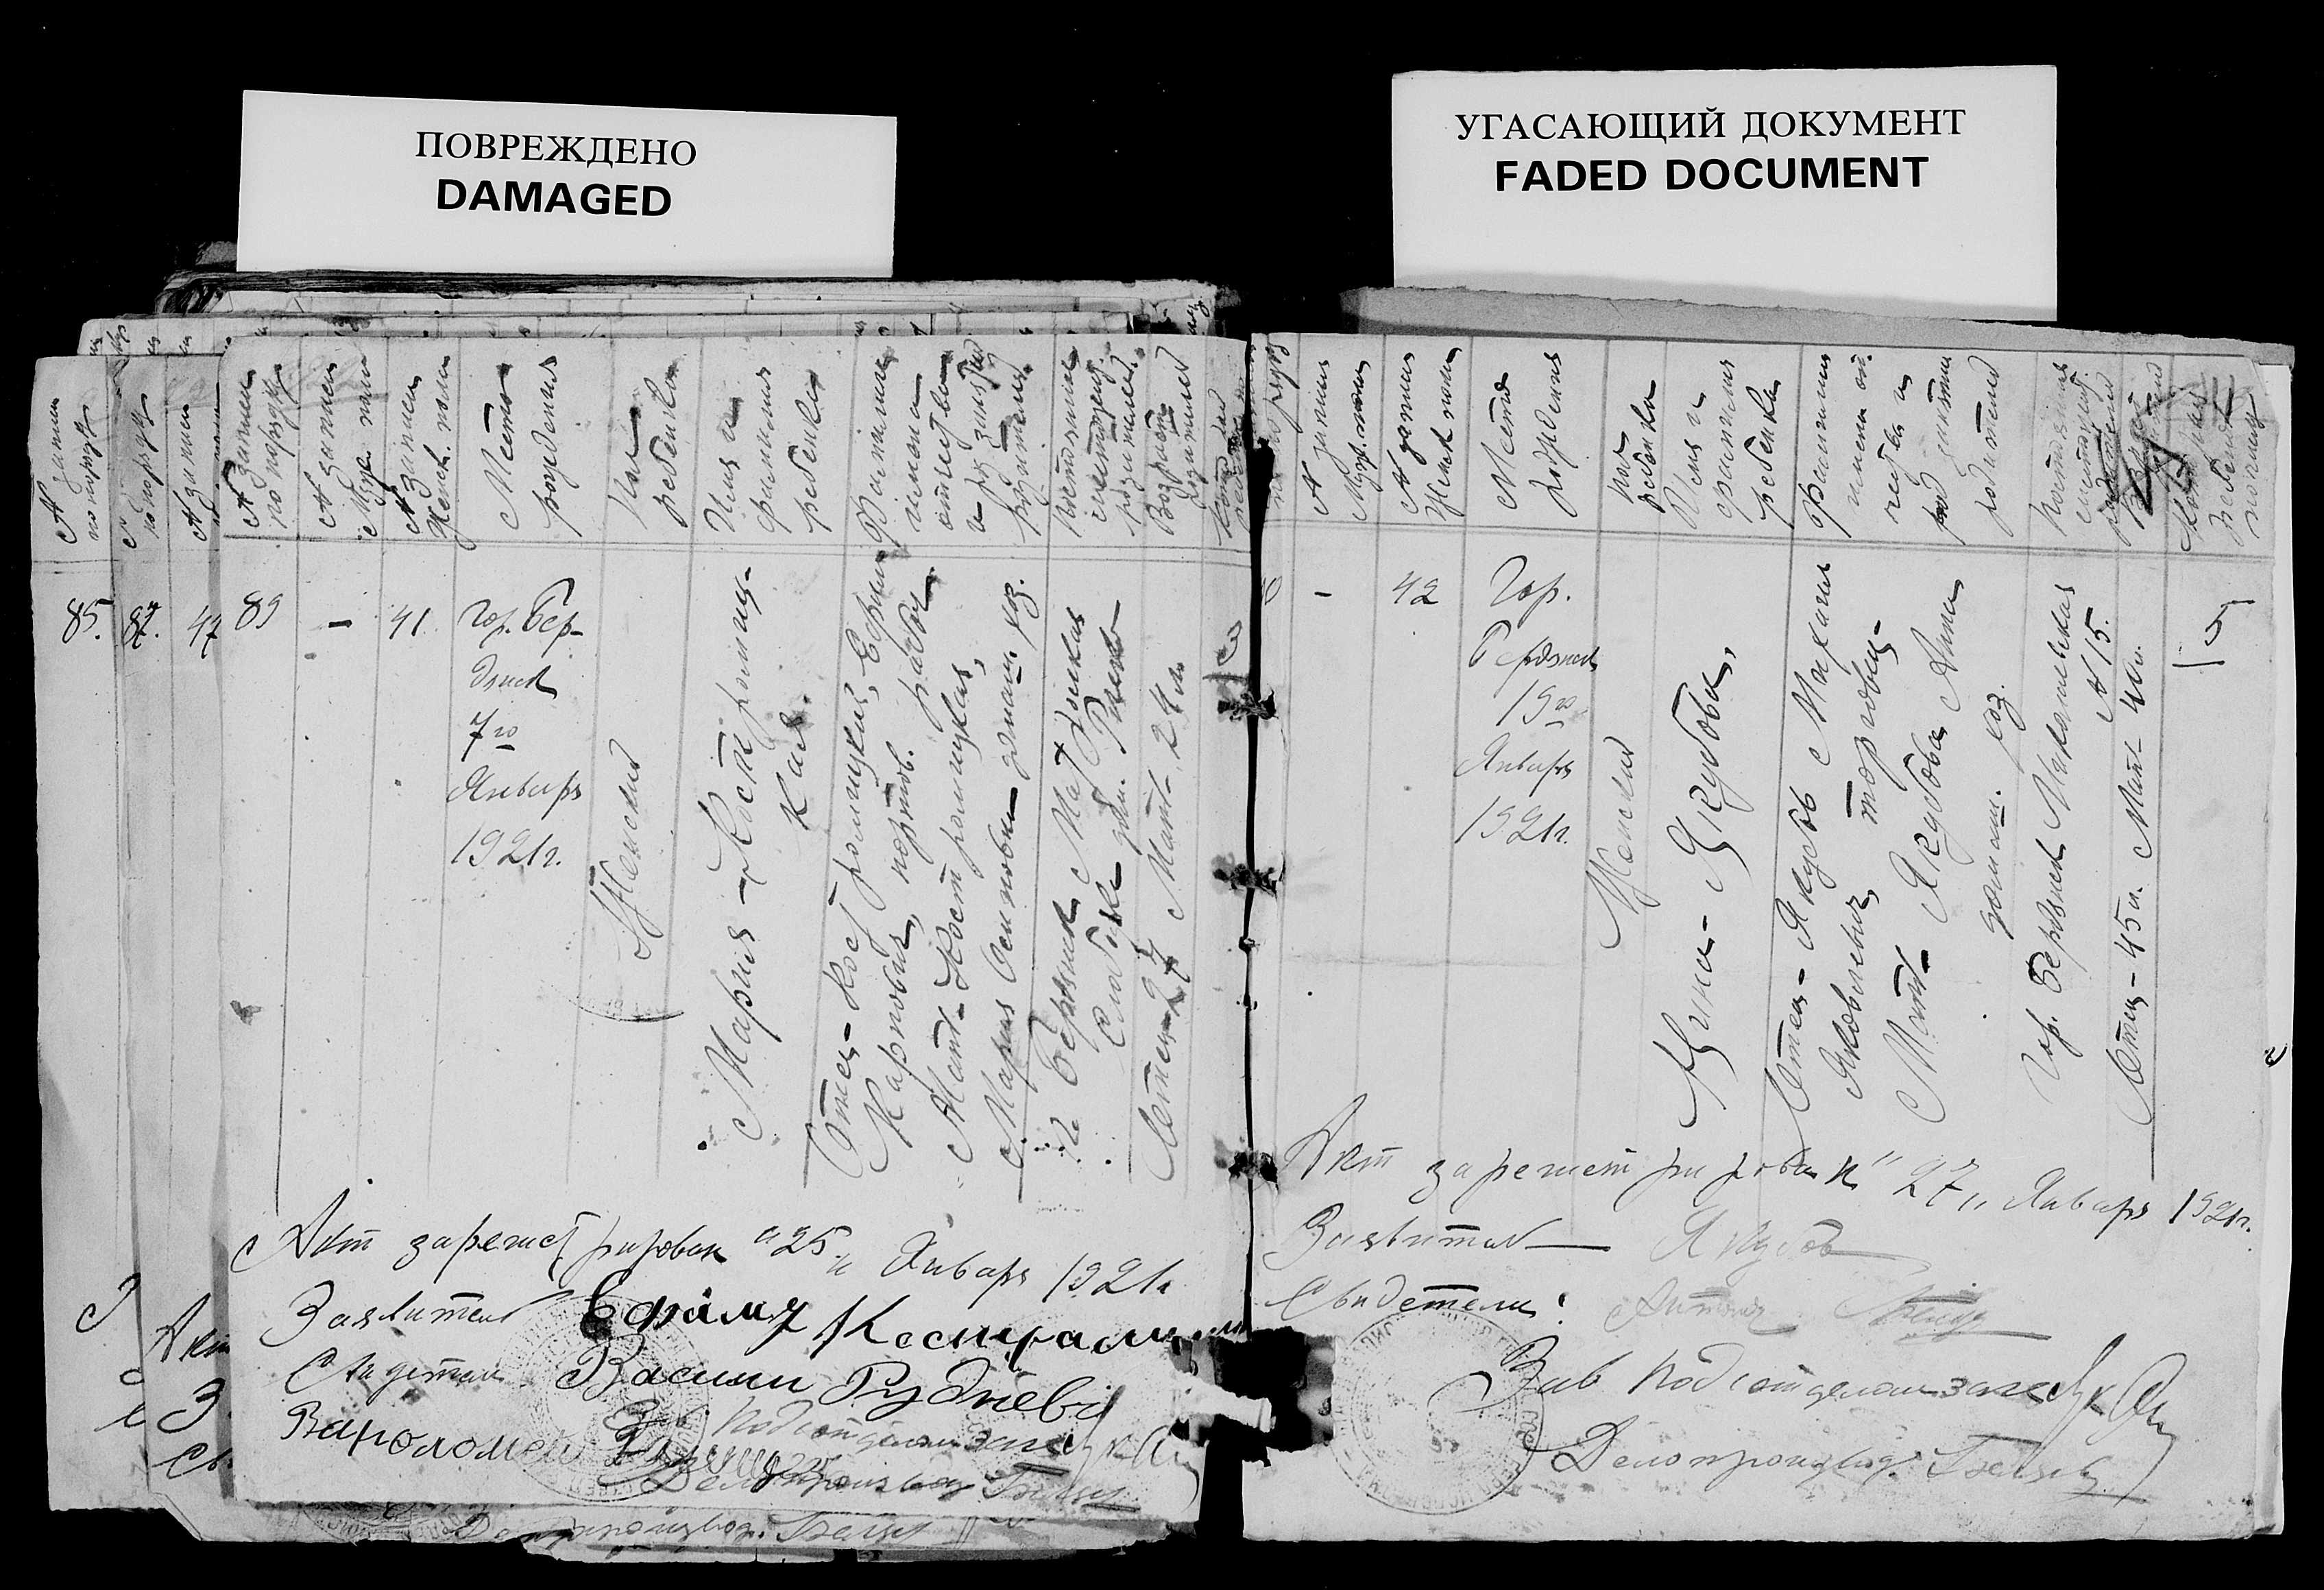 ПОВРЕЖДЕНО
DAMAGED
УГАСАЮЩИЙ ДОКУМЕНТ
FADED DOCUMENT
85.
87.
47
№ записи
по порядку
№ записи
Муж. пола
№ записи
Женск. пола
Место
рождения
Пол
ребенка
Имя и
фамилия
ребенка
Фамилия
имя и
отчество
и род занятий
родителей
Постоянное
родителей
Возраст
родителей
89
—
41
Гор. Бер-
дянск
7го
Январь
1921г.
Женский
Мария — Костромиц-
кая.
Отец — Костромицкий, Ефим
Карпович, портов. рабоч.
Мать — Костромицкая,
Мария Осиповна — домаш. хоз.
г. Бердянск
Слободка дом.
Отец — 27 Мать — 24 л.
Акт зарегистрирован "25" Январь 1921г.
Заявитель Ефимъ Костромиц
Свидетели Василий Рудневъ
Вароломей
Зав. Подотделом загс
Делопроизвод.
Делопроизвод.
№ записи
Муж. пола
№ записи
Женск. пола
Место
рождения
Пол
ребенка
Имя и
фамилия
ребенка
Фамилия
имя от-
чество и
род занятий
родителей
–
42
Гор.
Бердянск
19го
Январь
1921г.
Женский
Нина — Якубова,
Отец — Якубов Михаил
Яковлевич, торговец
Мать — Якубова Анна
домаш. хоз.
Гор. Бердянск
№ 15.
Отец — 45 л. Мать — 40 л.
5
Акт зарегистрирован "27" Январь 1921г.
Заявитель — Якубов
Свидетели:
Зав Подотделом загс
Делопроизвод.